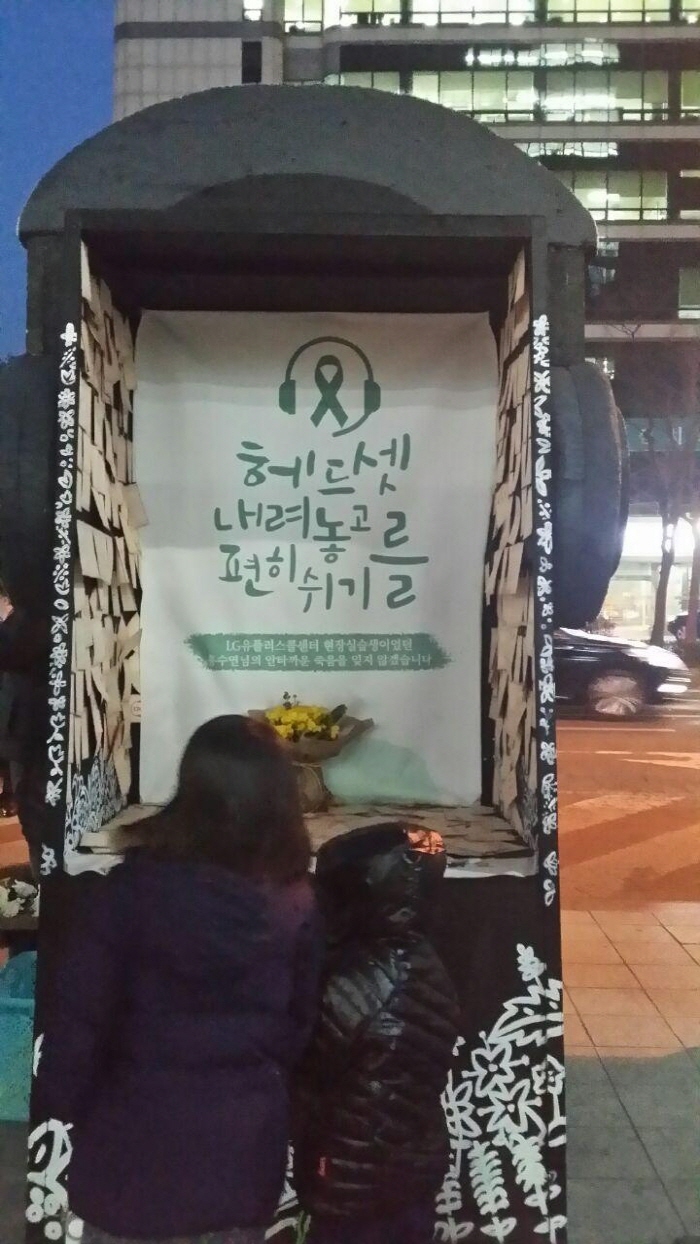 헤드셋
내려놓고
편히 쉬기를
LG유플러스콜센터 현장실습생이었던
홍수연님의 안타까운 죽음을 잊지 않겠습니다